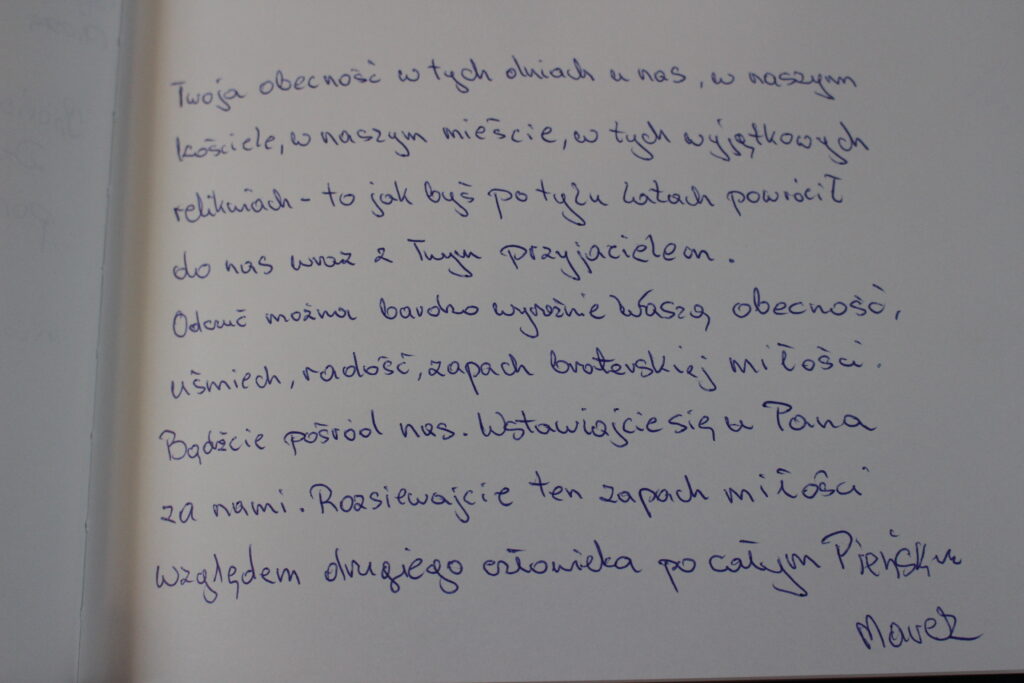 Twoja obecność w tych dniach u nas, w naszym
kościele, w naszym mieście, w tych wyjątkowych
relikwiach - to jak byś po tylu latach powrócił
do nas wraz z Twym przyjacielem.
Odczuć można bardzo wyraźnie Waszą obecność,
uśmiech, radość, zapach braterskiej miłości.
Bądźcie pośród nas. Wstawiajcie się u Pana
za nami. Rozsiewajcie ten zapach miłości
względem drugiego człowieka po całym Pieńsku
Marek